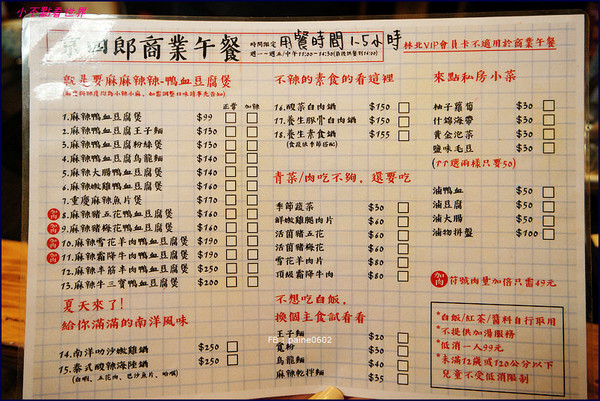 小不點看世界
京四郎商業午餐
時間限定
用餐時間1.5小時
林北VIP會員卡不適用於商業午餐
就是要麻麻辣辣-鴨血豆腐煲
正常 加辣
1.麻辣鴨血豆腐煲 $99
2.麻辣鴨血豆腐王子麵 $130
3.麻辣鴨血豆腐粉絲煲 $130
4.麻辣鴨血豆腐烏龍麵 $140
5.麻辣大腸鴨血豆腐煲 $150
6.麻辣嫩雞鴨血豆腐煲 $160
7.重慶麻辣魚片煲 $170
加肉 8.麻辣豬五花鴨血豆腐煲 $160
加肉 9.麻辣豬梅花鴨血豆腐煲 $160
加肉 10.麻辣雪花羊肉鴨血豆腐煲 $190
加肉 11.麻辣霜降牛肉鴨血豆腐煲 $190
12.麻辣半筋半肉鴨血豆腐煲 $200
13.麻辣牛三寶鴨血豆腐煲 $200
夏天來了!
給你滿滿的南洋風味
14.南洋叻沙嫩雞鍋 $250
15.泰式酸辣海陸鍋 $250
(白蝦、五花肉、巴沙魚片、蛤蠣)
不辣的素食的看這裡
16.酸菜白肉鍋 $150
17.養生豚骨白肉鍋 $150
18.養生素食鍋 $155
(食蔬依季節搭配)
青菜/肉吃不夠,還要吃
季節蔬菜 $30
鮮嫩雞腿肉片 $60
活菌豬五花 $60
活菌豬梅花 $60
雪花羊肉片 $80
頂級霜降牛肉 $80
不想吃白飯,
換個主食試看看
王子麵 $20
寬粉 $30
烏龍麵 $40
麻辣乾拌麵 $35
來點私房小菜
柚子蘿蔔 $30
什錦海帶 $30
黃金泡菜 $30
鹽味毛豆 $30
(↑↑選兩樣只要50)
滷鴨血 $50
滷豆腐 $50
滷大腸 $50
滷物拼盤 $100
加肉 符號肉量加倍只需49元
*白飯/紅茶/醬料自行取用
*不提供加湯服務
*低消一人99元
*未滿12歲或120公分以下
兒童不受低消限制
FB：paine0602